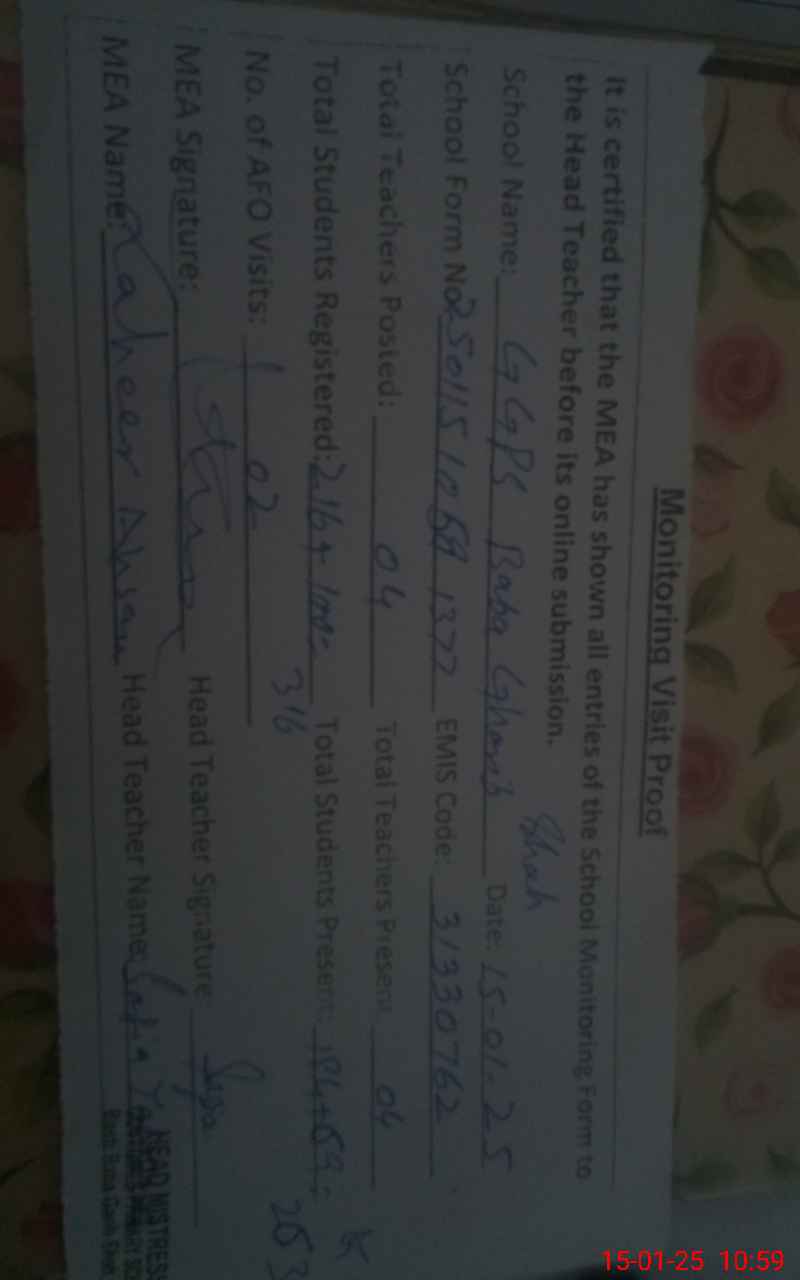 Monitoring Visit Proof
It is certified that the MEA has shown all entries of the School Monitoring Form to
the Head Teacher before its online submission.
School Name: GGPS Baba Gharib Shah Date: 15-01-25
School Form No. EMIS Code: 31330762
Total Teachers Posted: 04 Total Teachers Present: 04
Total Students Registered: 216+100= 316 Total Students Present: 194+59= 253
No. of AFO Visits: 02
MEA Signature: Head Teacher Signature:
MEA Name: Zaheer Ahsan Head Teacher Name: Safia
HEAD MISTRESS
15-01-25 10:59